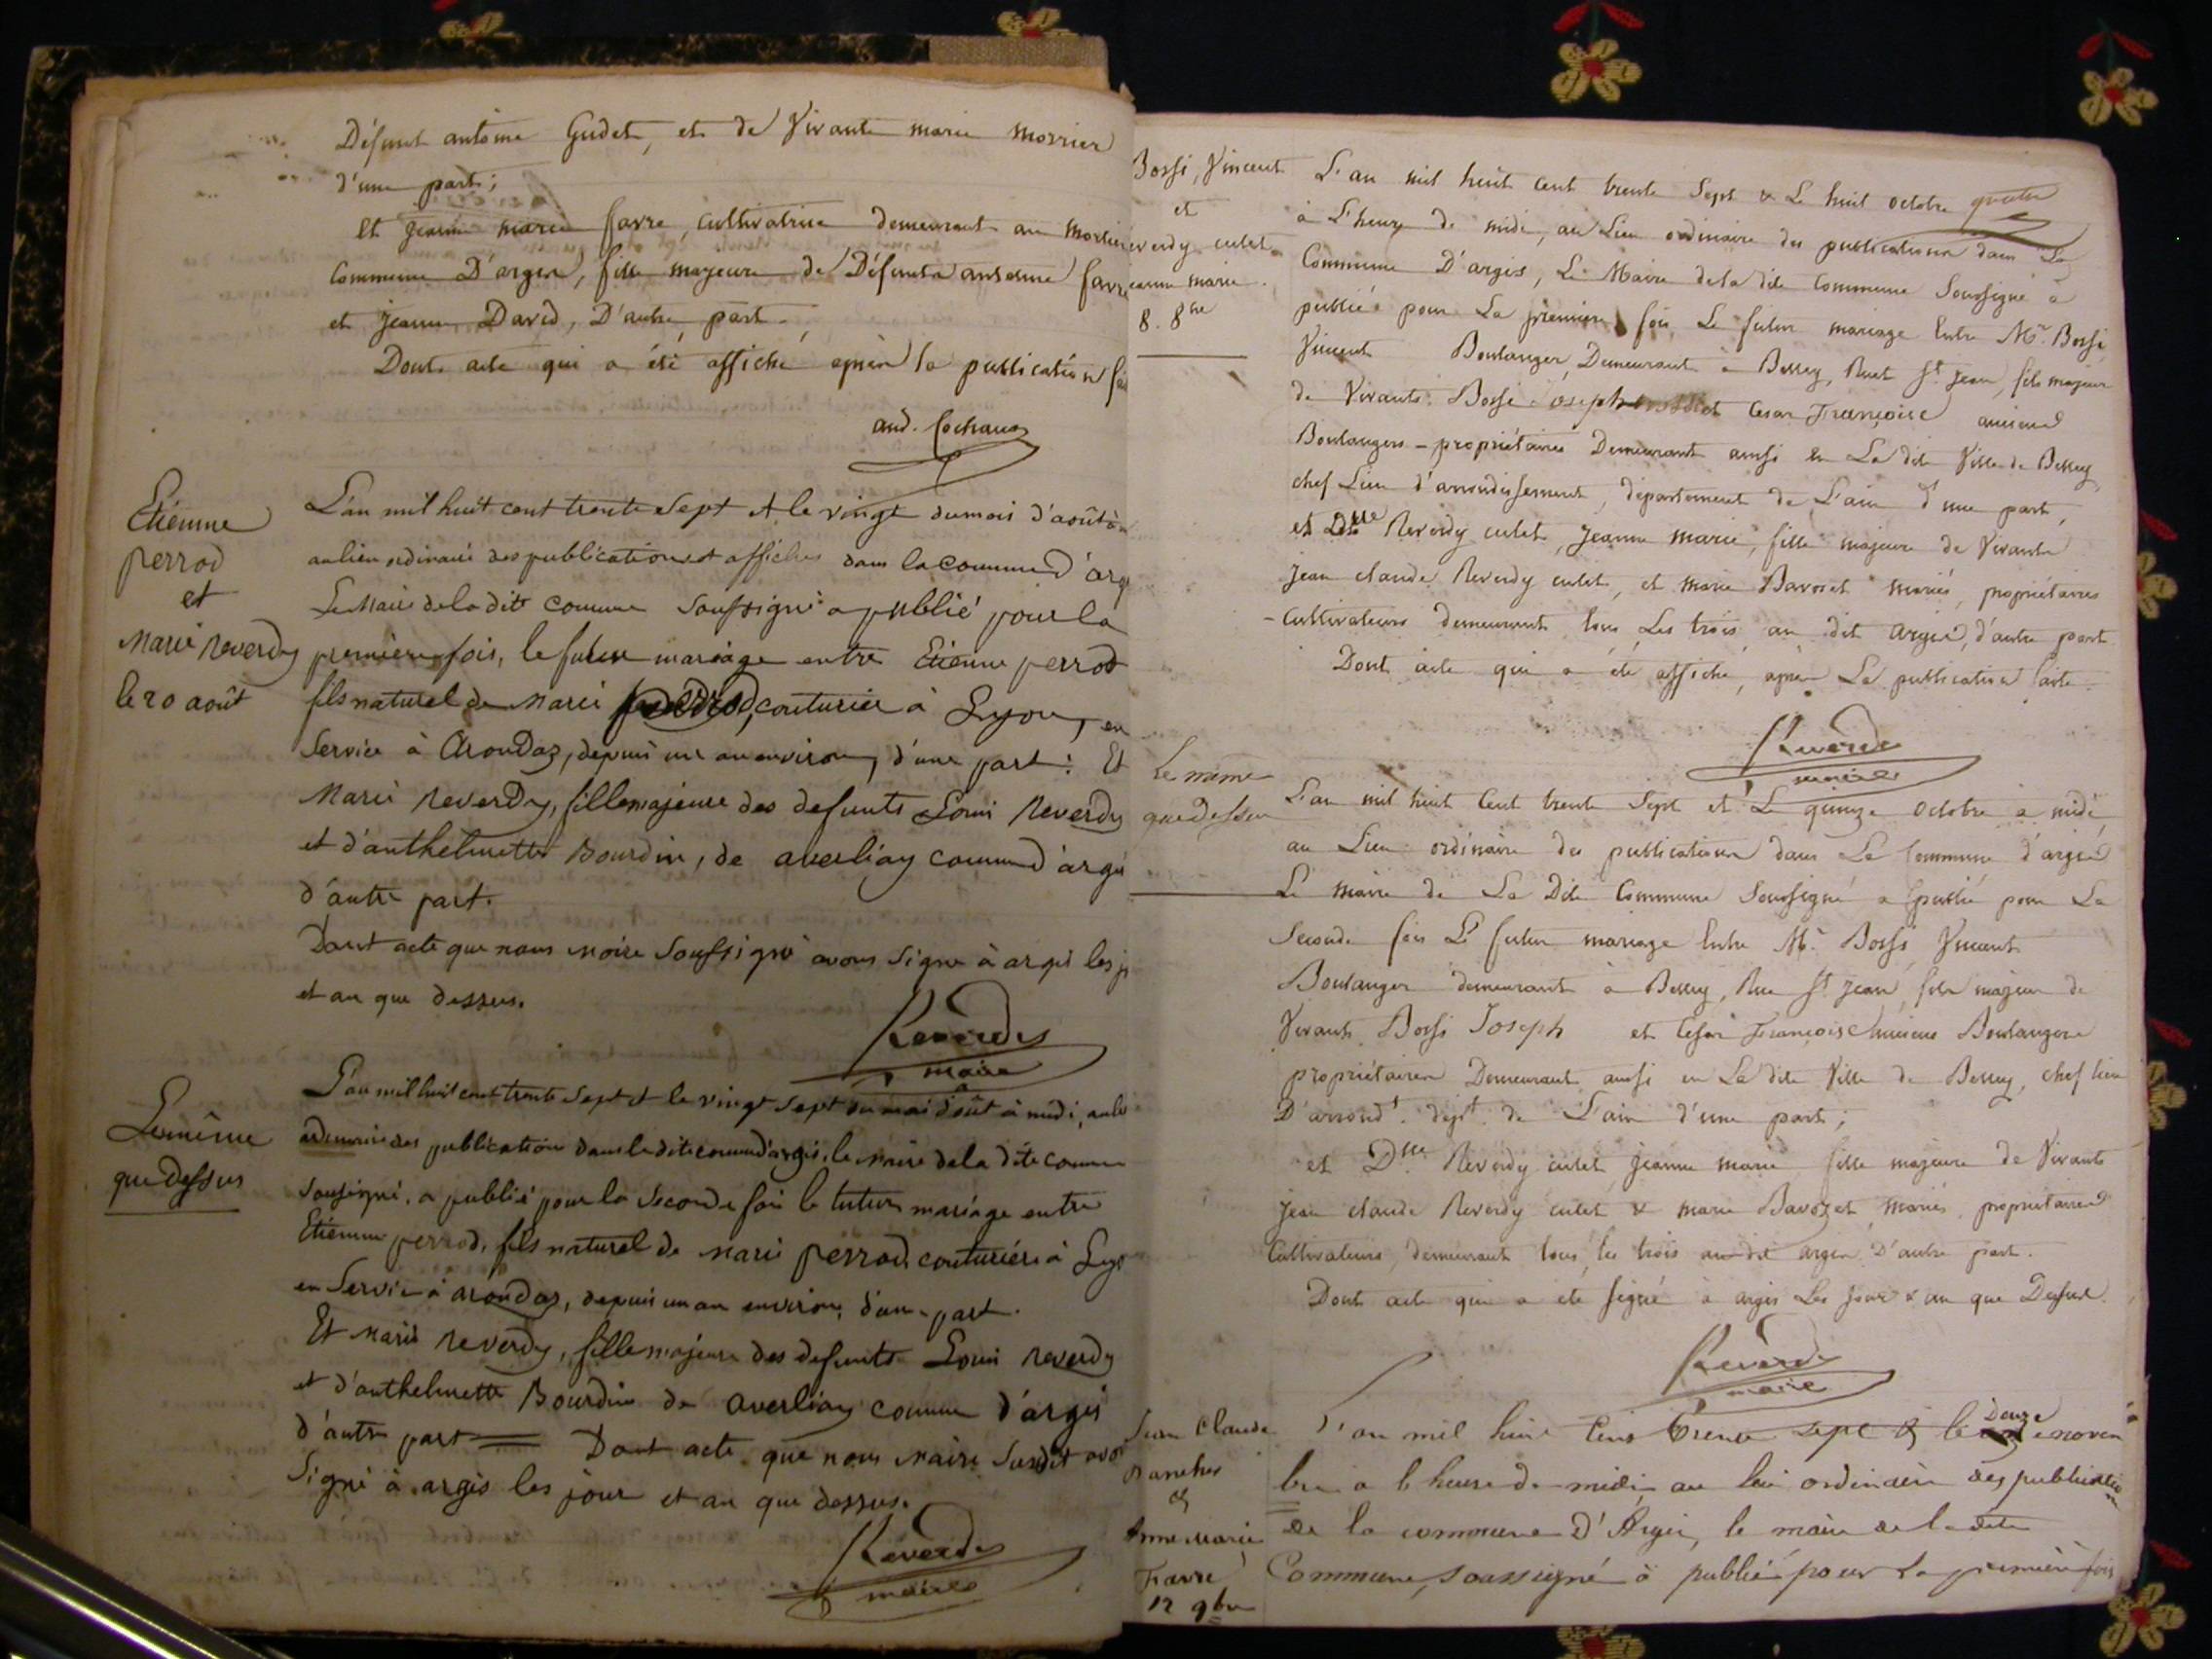 Défunt antoine Gudet, et de Vivante marie morrier
d'une part;
Et jeanne marie favre, cultivatrice demeurant au
Commune D'argis, fille majeure de Défunts anselme favre
et jeanne David, D'autre part.
Dont acte qui a été affiché après la publication
Etienne
perrod
et
Marie Reverdy
le 20 août
L'an mil huit cent trente sept et le vingt du mois d'août à
au lieu ordinaire des publications et affiches dans la commune d'arg
Le Maire de la dite comune soussigné a publié pour la
premiere fois, le futur mariage entre Etienne perrod
fils naturel de Marie perrod, couturière à Lyon, en
service à Arondaz, depuis un an environ, d'une part: Et
Marie Reverdy, fille majeure des defunts Louis Reverdy
et d'anthelmette Bourdin, de averliaz commune d'argis
d'autre part.
Dont acte que nous Maire soussigné avons signé à argis les j
et an que dessus.
Reverdy
maire
Le même
que Dessus
L'an mil huit cent trente sept et le vingt sept du mois d'août à midi, au li
ordinaire des publication dans la dite commune d'argis, le Maire de la dite comune
soussigné, a publié pour la seconde fois le futur mariage entre
Etienne perrod, fils naturel de Marie perrod, couturière à Lyo
en service à arondaz, depuis un an environ, d'une part.
Et Marie Reverdy, fille majeure des defunts Louis Reverdy
et d'anthelmette Bourdin de averliaz commune d'argis
d'autre part Dont acte que nous Maire susdit avo
signé à argis les jour et an que dessus.
Reverdy
maire
Bossi, Vincent
et
everdy culet
eanne marie.
8. 8bre
L'an mil huit cent trente sept & Le huit octobre
à L'heure de midi, au Lieu ordinaire des publications dans La
Commune D'argis, Le Maire de la dite Commune Soussigné à
publié pour La première fois, Le futur mariage Entre Mr. Bossi
Vincent Boulanger, Demeurant à Belley, Rue St. Jean, fils majeur
de Vivants Bossi Joseph et Cesar Françoise anciens
Boulangers - propriétaires Demeurant aussi en La dite Ville de Belley,
chef Lieu d'arrondissement, département de L'ain d'une part,
et Dlle Reverdy culet, Jeanne marie, fille majeure de Vivants
Jean claude Reverdy culet, et marie Bavozet mariés, propriétaires
- Cultivateurs demeurant tous Les trois au dit argis, d'autre part.
Dont acte qui a été affiché, après La publication faite.
Reverdy
maire
Le même
que Dessus
L'an mil huit Cent trente Sept et Le quinze octobre à midi,
au Lieu ordinaire des publications dans La Commune d'argis
Le maire de La Dite Commune Soussigné a publié pour La
Seconde fois Le futur mariage Entre Mr. Bossi Vincent
Boulanger demeurant à Belley, Rue St. Jean, fils majeur de
Vivants Bossi Joseph et Cesar Françoise anciens Boulangers
propriétaires Demeurant aussi en La dite Ville de Belley, chef lieu
D'arrondt. dépt. de L'ain d'une part;
et Dlle Reverdy culet Jeanne marie fille majeure de Vivants
Jean claude Reverdy culet & marie Bavozet mariés, propriétaires
Cultivateurs, demeurant tous les trois au dit argis D'autre part.
Dont acte qui a été signé à argis Les jour & an que Dessus.
Reverdy
maire
Jean Claude
et
Anne Marie
Favre
12 9bre
L'an mil huit cent trente sept & le Douze novem
bre a l heure de midi au lieu ordinaire des publication
de la commune D'Argis, le maire de la dite
Commune, soussigné à publié pour la première fois